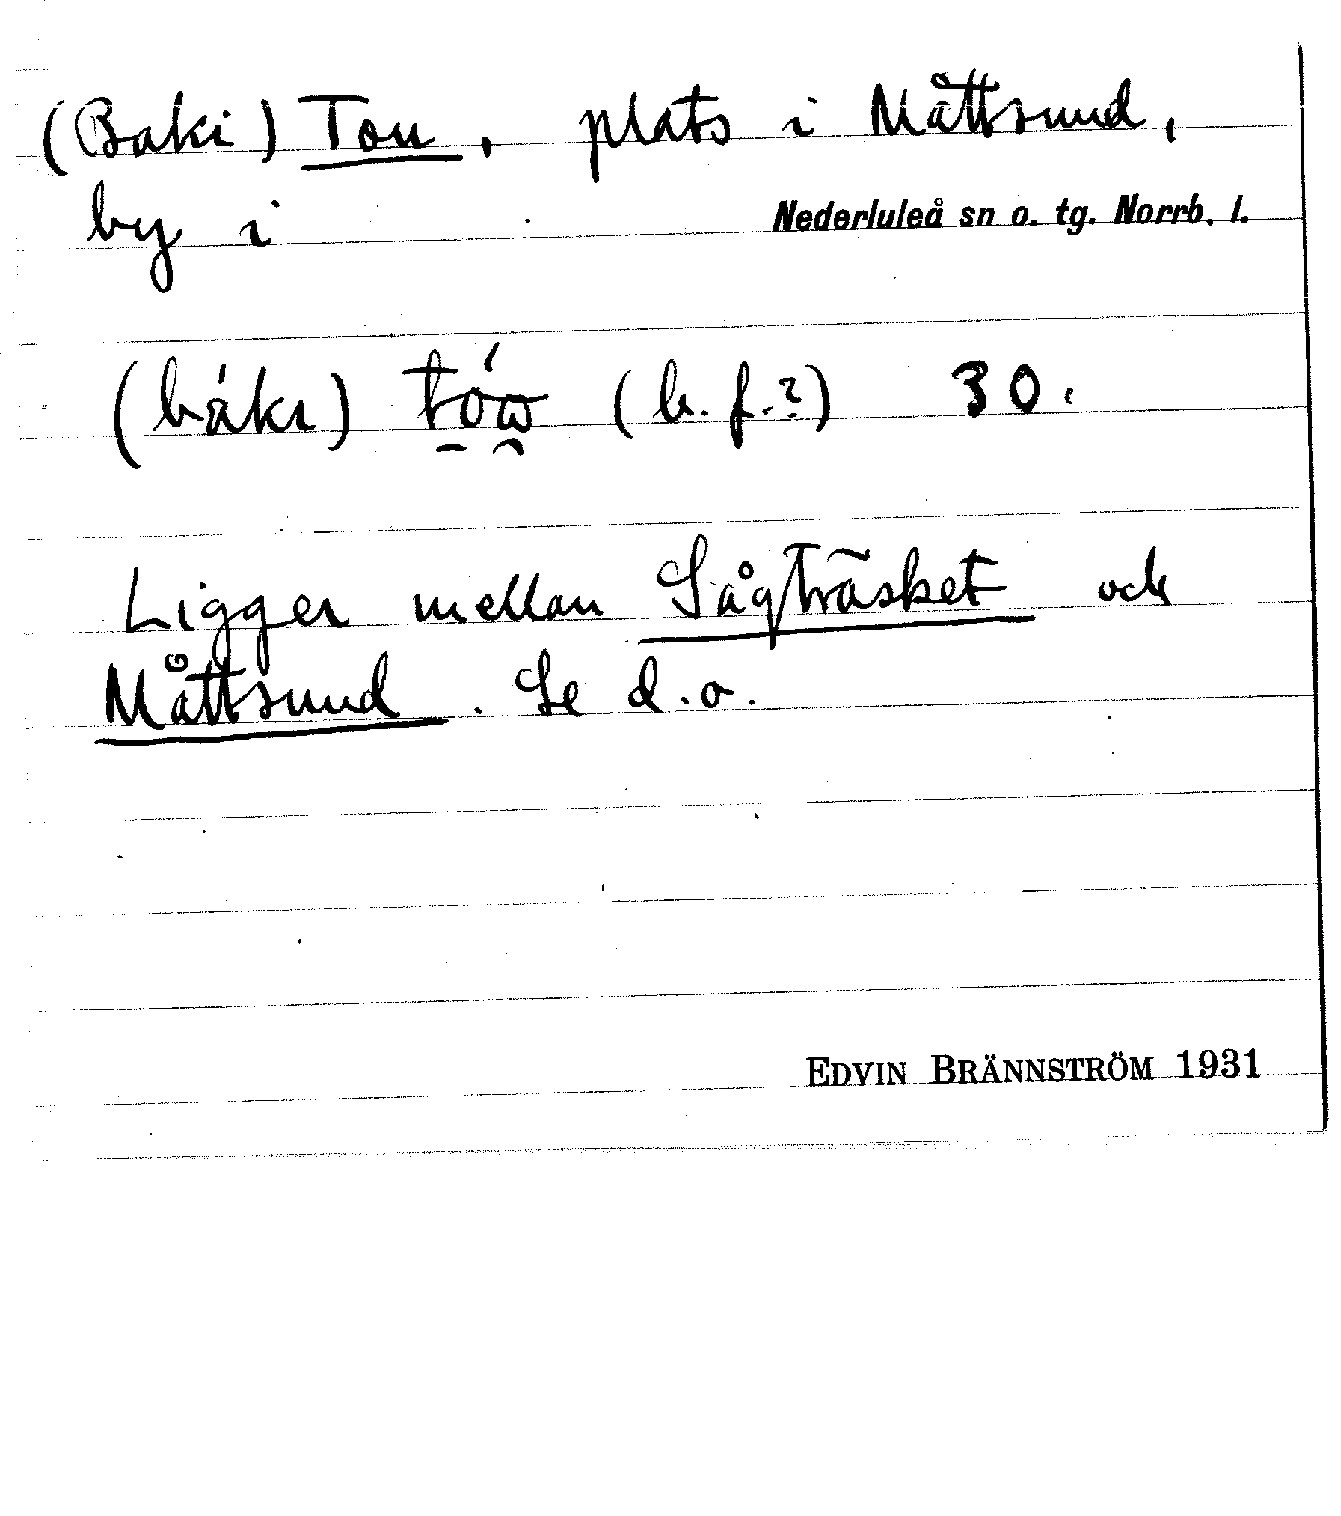 (Baki) Tou, plats i Måttsund,
by i Nederluleå sn o. tg. Norrb. l.
(b. f.?) 30.
Ligger mellan Sågträsket och
Måttsund. Se d. o.
EDVIN BRÄNNSTRÖM 1931